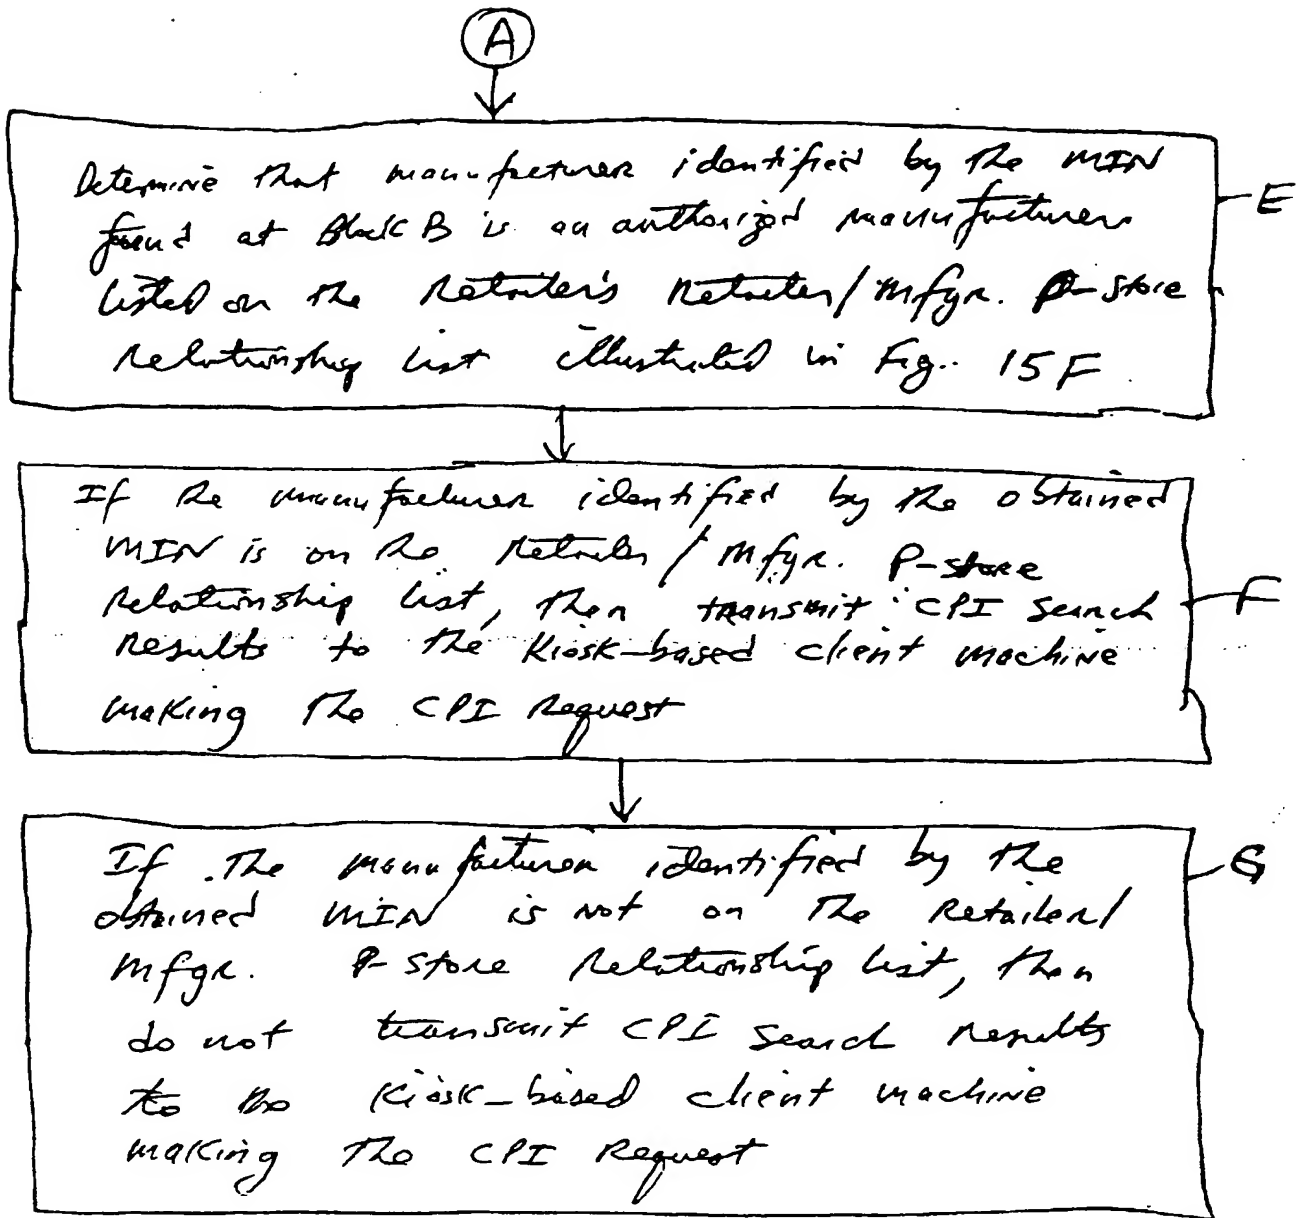 A
Determine that manufacturer identified by the MIN
found at Block B is an authorized manufacturer
listed on the Retailer's Retailer/Mfgr. P-store
Relationship List illustrated in Fig. 15F
E
If the manufacturer identified by the obtained
MIN is on the Retailer/Mfgr. P-store
Relationship List, then transmit CPI Search
Results to the Kiosk-based client machine
making the CPI Request
F
If the manufacturer identified by the
obtained MIN is not on the Retailer/
Mfgr. P-store Relationship List, then
do not transmit CPI Search Results
to the Kiosk-based client machine
making the CPI Request
G